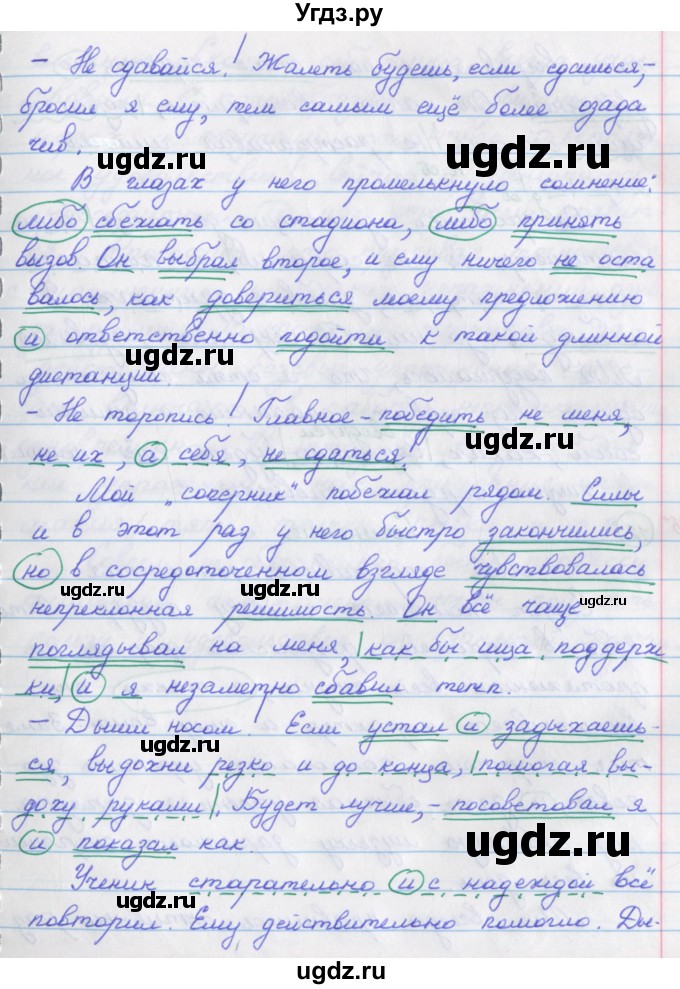 Угдз.ру
- Не сдавайся! Жалеть будешь, если сдашься, -
бросил я ему, тем самым ещё более озада
чив.
ugdz.ru
ugdz.ru
В глазах у него промелькнуло сомнение:
либо сбежать со стадиона, либо принять
вызов. Он выбрал второе, и ему ничего не оста
валось, как довериться моему предложению
и ответственно подойти к такой длинной
ugdz.ru
дистанции.
- Не торопись! Главное - победить не меня,
ugdz.ru
не их, а себя, не сдаться!
Мой „соперник" побежал рядом. Силы
и в этот раз у него быстро закончились,
но в сосредоточенном взгляде чувствовалась
ugdz.ru
ugdz.ru
непреклонная решимость. Он всё чаще
поглядывал на меня, как бы ища поддерж
ки, и я незаметно сбавил темп.
- Дыши носом! Если устал и задыхаешь-
ugdz.ru
ся, выдохни резко и до конца, помогая вы-
доху руками. Будет лучше, - посоветовал я
ugdz.ru
ugdz.ru
и показал как.
Ученик старательно и с надеждой всё
повторил. Ему действительно помогло. Ды-
ugdz.ru